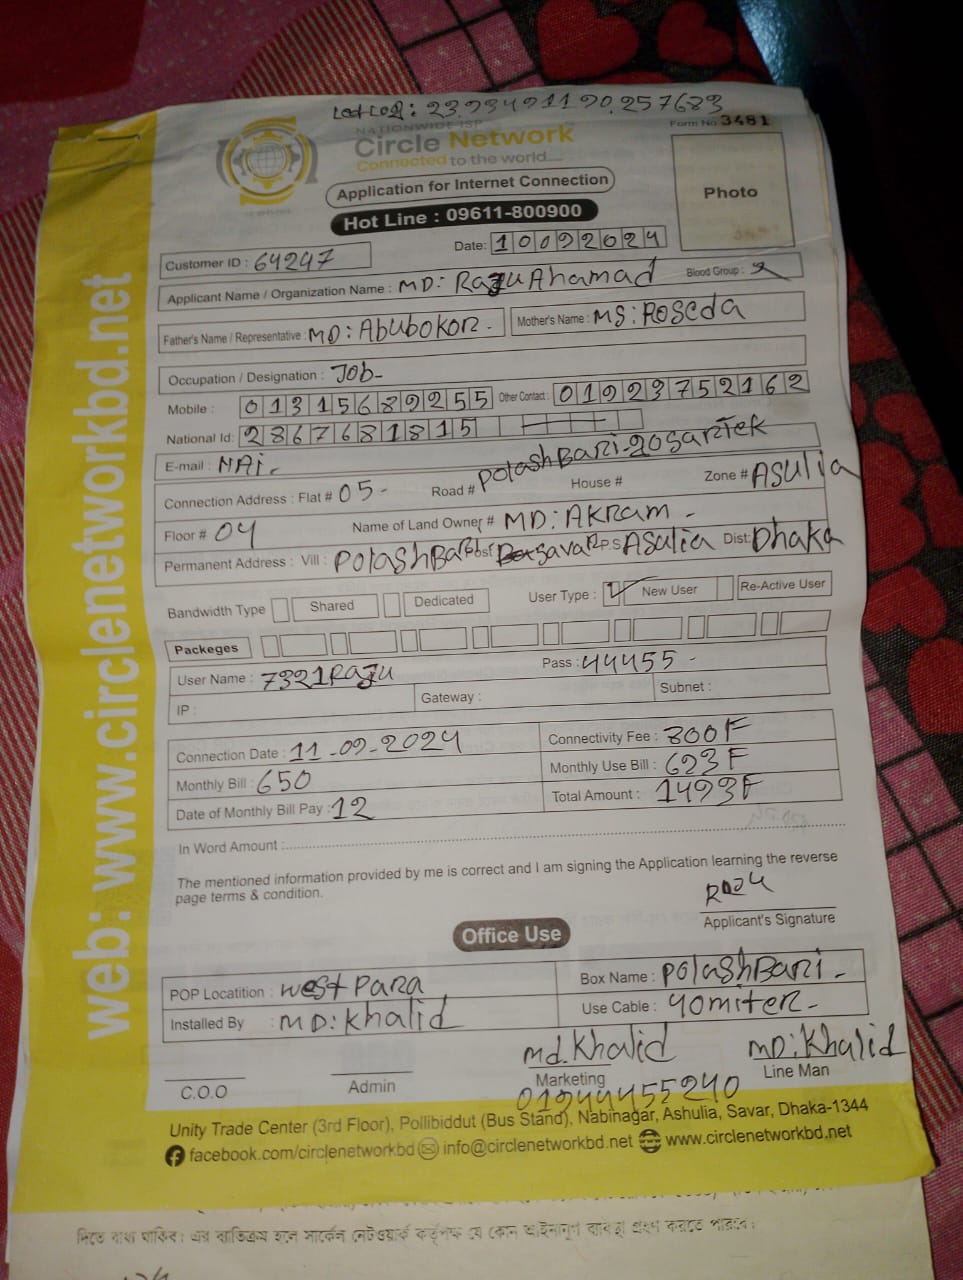 NATIONWIDE ISP
Form No 3481
Circle Network
Connected to the world....
Application for Internet Connection
Hot Line : 09611-800900
Photo
Customer ID : 64247
Date: 10092024
Applicant Name / Organization Name : MD: Razu Ahamad Blood Group :
Father's Name / Representative : MD: Abubokor. Mother's Name : MS: Roseda
Occupation / Designation : Job-
Mobile : 01315689255 Other Contact : 01923752162
National Id: 2867681815
E-mail : NAi.
Connection Address : Flat # 05 - Road # PolashBari- House # Zone # ASulia
Floor # 04 Name of Land Owner # MD: AKRam -
Permanent Address : Vill : PolashBa Post savar P.S ASulia Dist: Dhaka
Bandwidth Type Shared Dedicated User Type : New User Re-Active User
Packeges
User Name : 7321Razu Pass : 44455 -
IP : Gateway : Subnet :
Connection Date : 11-09-2024 Connectivity Fee :
Monthly Bill : 650 Monthly Use Bill : 623F
Date of Monthly Bill Pay : 12 Total Amount :
In Word Amount :
The mentioned information provided by me is correct and I am signing the Application learning the reverse
page terms & condition.
Razu
Applicant's Signature
Office Use
POP Locatition : west Para Box Name : PolashBari -
Installed By : MD: Khalid Use Cable : 40miter -
md. Khalid MD: Khalid
C.O.O Admin Marketing Line Man
Unity Trade Center (3rd Floor), Pollibiddut (Bus Stand), Nabinagar, Ashulia, Savar, Dhaka-1344
facebook.com/circlenetworkbd info@circlenetworkbd.net www.circlenetworkbd.net
web: www.circlenetworkbd.net